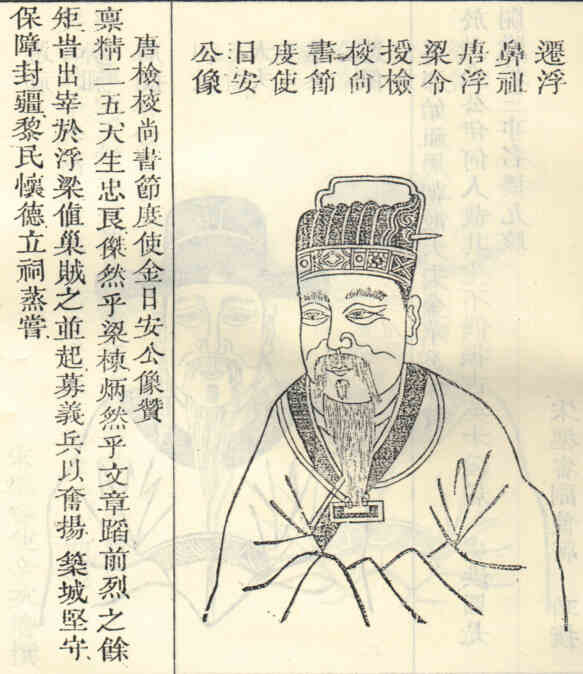 遷浮
鼻祖
唐浮
梁令
授檢
校尚
書節
度使
日安
公像
唐檢校尚書節度使金日安公像贊
稟精二五天生忠良傑然乎梁棟炳然乎文章蹈前烈之餘
矩旹出宰於浮梁值巢賊之並起募義兵以奮揚築城堅守
保障封疆黎民懷德立祠蒸嘗